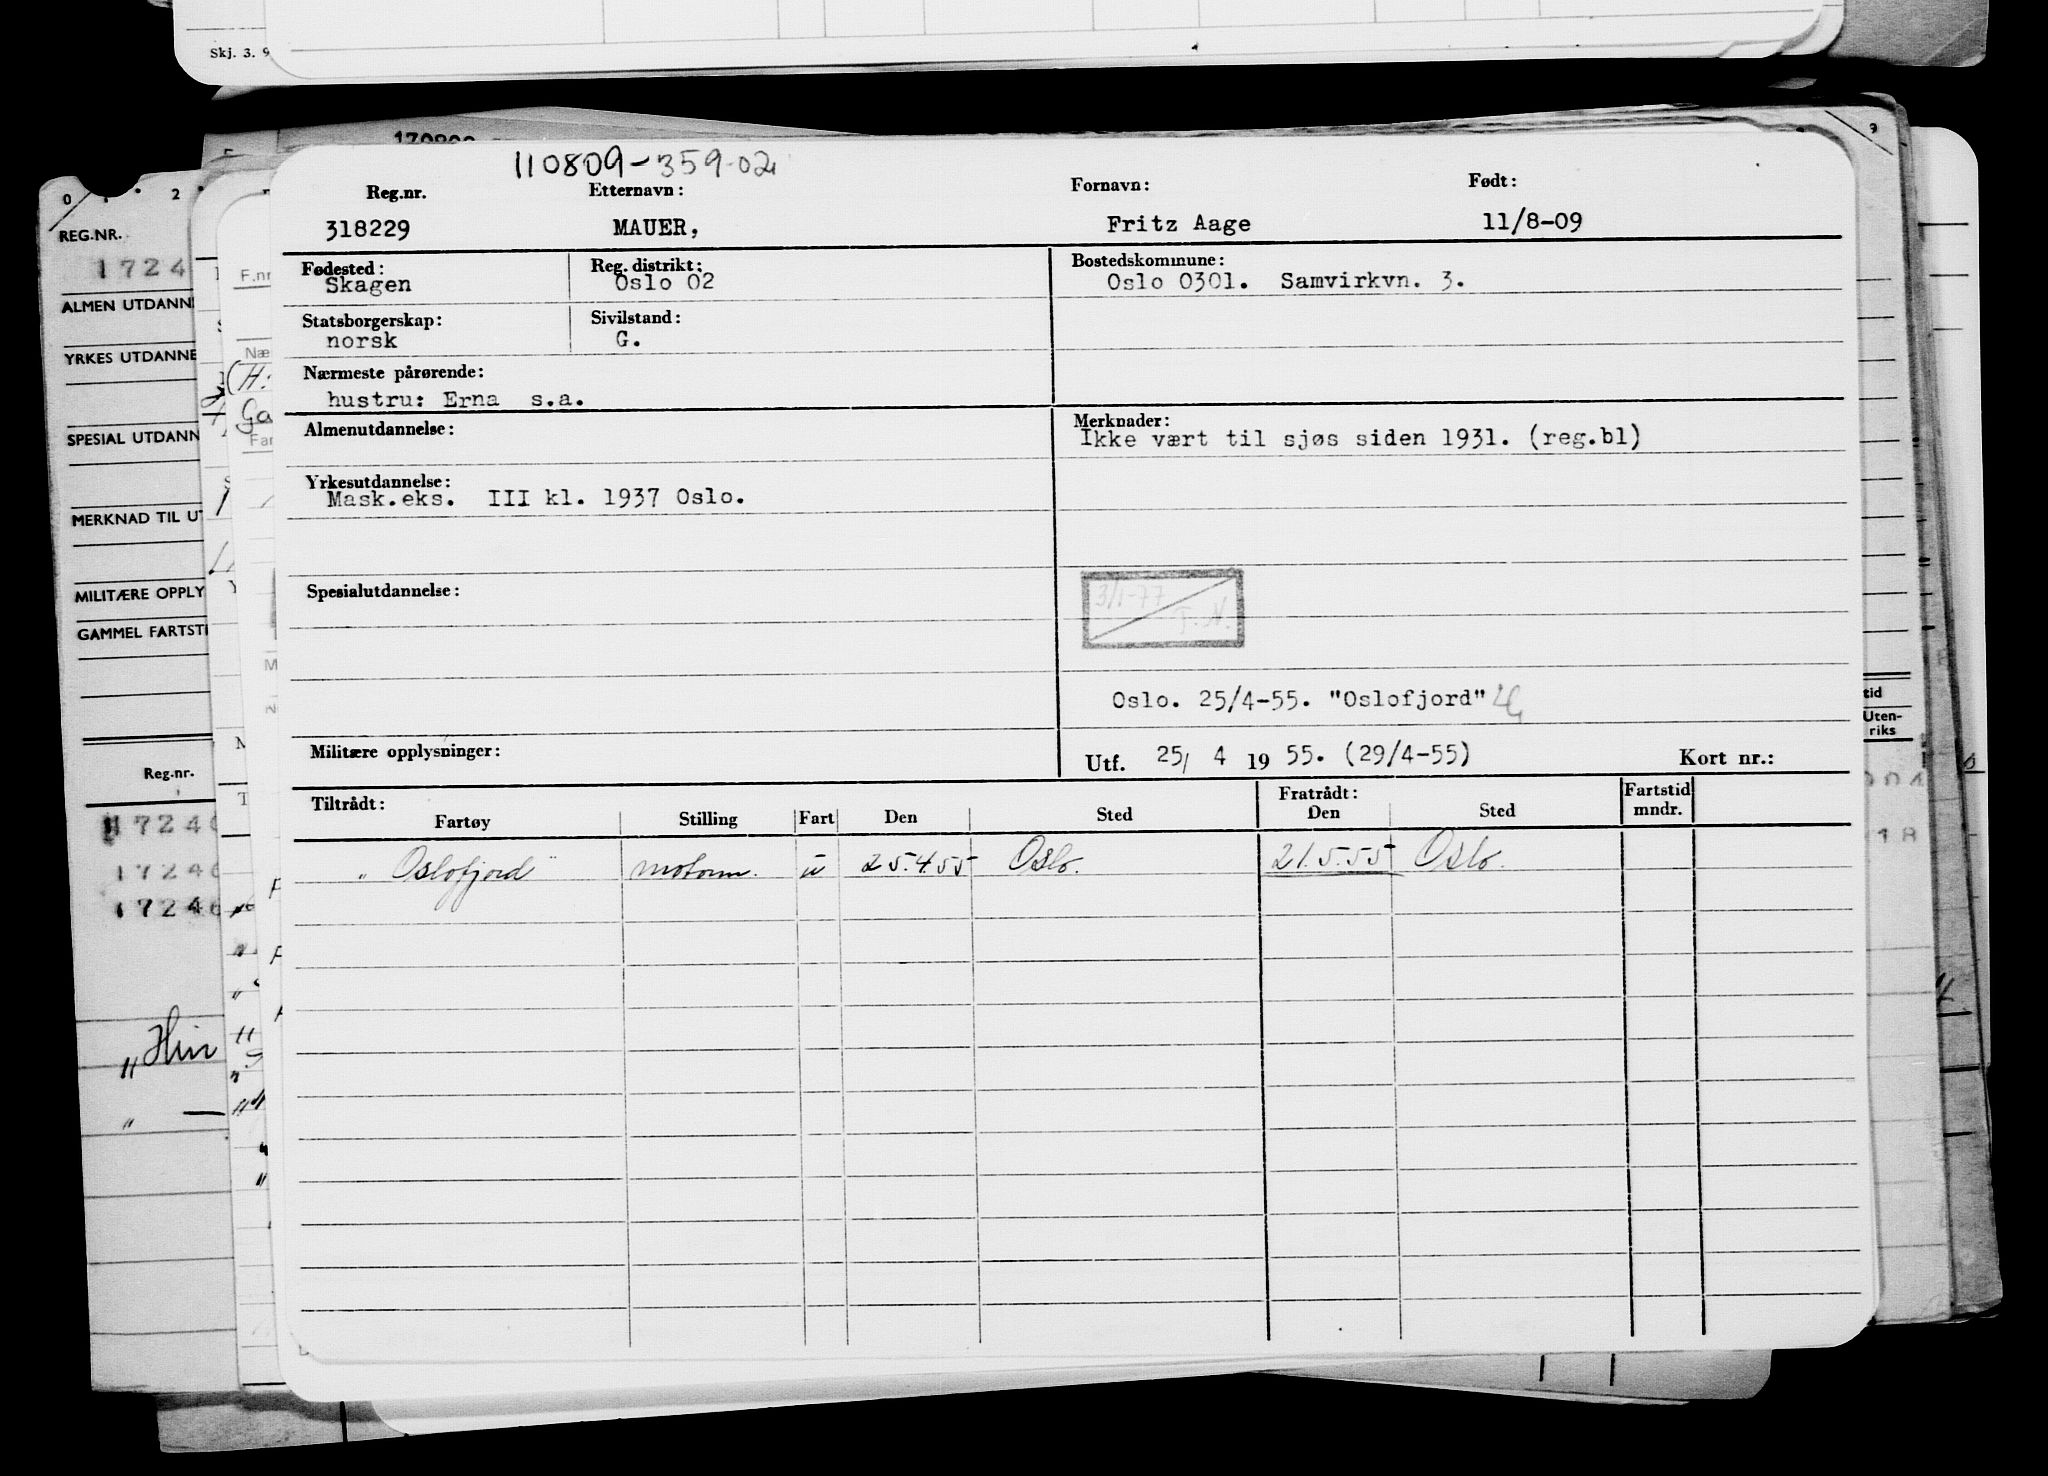 Skj. 3. 9
110809-359-02
Reg.nr. Etternavn: Fornavn: Født:
318229 MAUER, Fritz Aage 11/8-09
Fødested: Reg. distrikt: Bostedskommune:
Skagen Oslo 02 Oslo 0301. Samvirkvn. 3.
Statsborgerskap: Sivilstand:
norsk G.
Nærmeste pårørende:
hustru: Erna s.a.
Almenutdannelse: Merknader:
Ikke vært til sjøs siden 1931. (reg.bl)
Yrkesutdannelse:
Mask.eks. III kl. 1937 Oslo.
Spesialutdannelse:
3/1-77
T.N.
Oslo. 25/4-55. "Oslofjord"
Militære opplysninger: Utf. 25/ 4 19 55. (29/4-55) Kort nr.:
Tiltrådt: Fratrådt: Fartstid
Fartøy Stilling Fart Den Sted Den Sted mndr.
"Oslofjord" motorm. u 25.4.55 Oslo. 21.5.55 Oslo.
REG.NR.
1724
ALMEN UTDANN
YRKES UTDANNE
SPESIAL UTDANN
MERKNAD TIL UT
MILITÆRE OPPLY
GAMMEL FARTST
Reg.nr.
17240
17240
17240
F.nr
Næ
(H:
Ga
Far
"Hin
tid
Uten-
riks